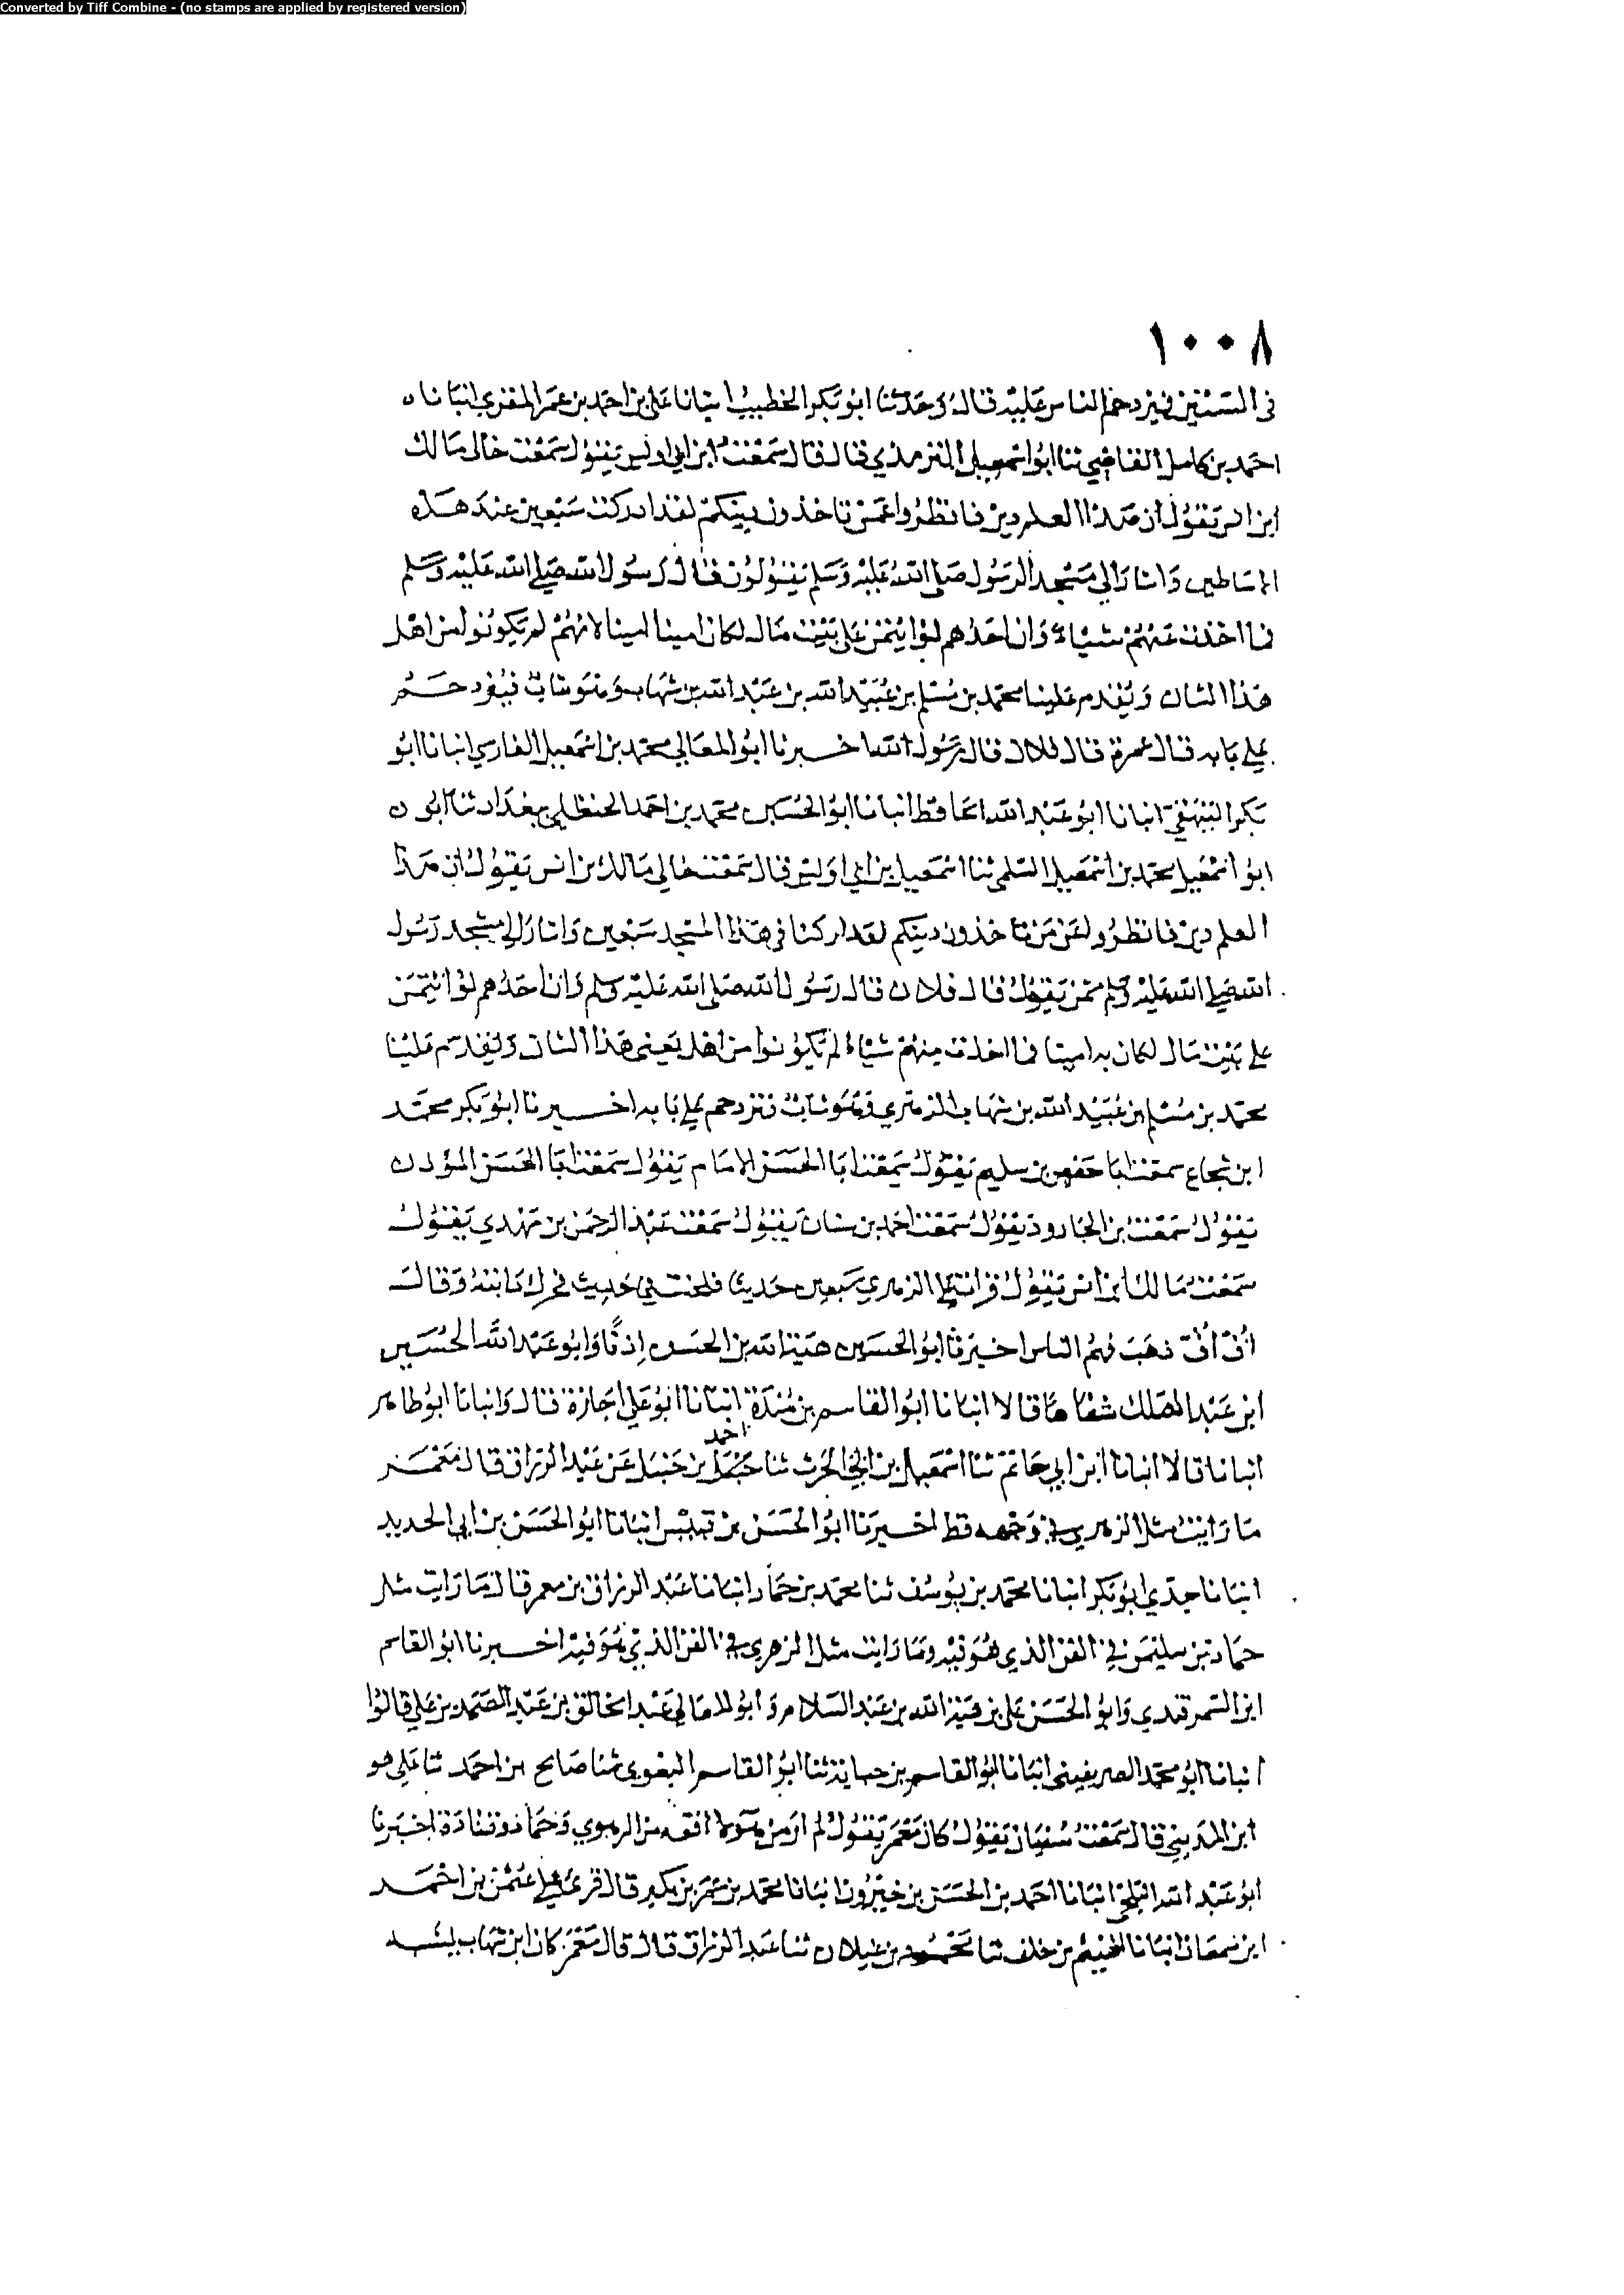 Converted by Tiff Combine - (no stamps are applied by registered version)
١٠٠٨
في السنتين فيزدحم الناس عليه قال وحدثنا ابو بكر الخطيب انبانا علي بن احمد بن عمر المقري انبانا
احمد بن كامل القاضي ثنا ابو اسمعيل الترمذي قال قال سمعت ابن ابي اويس يقول سمعت خالي مالك
ابن انس يقول ان هذا العلم دين فانظروا عمن تاخذون دينكم لقد ادركت سبعين عند هذه
الاساطين واشار الي مسجد الرسول صلى الله عليه وسلم يقولون قال رسول الله صلى الله عليه وسلم
فما اخذت عنهم شياء وان احدهم لو ايتمن على بيت مال لكان امينا لانهم لم يكونوا من اهل
هذا الشان ويقدم علينا محمد بن مسلم بن عبيد الله بن عبد الله بن شهاب وهو شاب فيزدحم
على بابه قال عمرة قال فلان قال رسول الله اخبرنا ابو المعالي محمد بن اسمعيل الفارسي انبانا ابو
بكر البيهقي انبانا ابو عبد الله الحافظ انبانا ابو الحسين محمد بن احمد الحنظلي ببغداد ثنا
ابو اسمعيل محمد بن اسمعيل السلمي ثنا اسمعيل بن ابي اويس قال سمعت خالي مالك بن انس يقول ان هذا
العلم دين فانظروا عمن تاخذون دينكم لقد ادركنا في هذا المسجد سبعين واشار الي مسجد رسول
الله صلى الله عليه وسلم ممن يقول قال فلان قال رسول الله صلى الله عليه وسلم وان احدهم لو ائتمن
على بيت مال لكان به امينا فما اخذت منهم شياء لم يكونوا من اهل يعني هذا الشان ويقدم علينا
محمد بن مسلم بن عبيد الله بن شهاب الزهري وهو شاب فنزدحم على بابه اخبرنا ابو بكر محمد
ابن شجاع سمعت ابا حفص بن سليم يقول سمعت ابا الحسن الامام يقول سمعت ابا الحسن المؤدن
يقول سمعت بن الجارود يقول سمعت احمد بن سنان يقول سمعت عبد الرحمن بن مهدي يقول
سمعت مالك بن انس يقول قرات على الزهري سبعين حديثا فلحنت في حديث فحرك دابته وقال
اف اف ذهب فهم الناس اخبرنا ابو الحسين هبة الله بن الحسن إذنا وابو عبد الله الحسين
ابن عبد الملك شفاها قالا انبانا ابو القاسم بن مندة انبانا ابو علي اجازة قال وانبانا ابو طاهر
احمد
انبانا قالا انبانا ابن ابي حاتم ثنا اسمعيل بن ابي الحرث ثنا حنبل بن حنبل عن عبد الرزاق قال معمر
ما رايت مثل الزهري في وجهه قط اخبرنا ابو الحسن بن قبيس انبانا ابو الحسن بن ابي الحديد
انبانا جدي ابو بكر انبانا محمد بن يوسف ثنا محمد بن حماد انبانا عبد الرزاق بن معمر قال ما رايت مثل
حماد بن سليمن في الفن الذي هو فيه وما رايت مثل الزهري في الفن الذي هو فيه اخبرنا ابو القاسم
ابن السمرقندي وابو الحسن علي بن هبة الله بن عبد السلام وابو المعالي عبد الخالق بن عبد الصمد بن علي قالوا
انبانا ابو محمد الصريفيني انبانا ابو القاسم بن حبابة ثنا ابو القاسم البغوي ثنا صالح بن احمد ثنا علي هو
ابن المديني قال سمعت سفيان يقول كان معمر يقول لم ار من هؤلا افقه من الزهري وحماد وقتادة اخبرنا
ابو عبد الله البلخي انبانا احمد بن الحسن بن خيرون انبانا محمد بن عمر بن بكير قال قرئ على عثمن بن احمد
ابن سمعان انبانا الهيثم بن خلف ثنا محمود بن غيلان ثنا عبد الرزاق قال قال معمر كان ابن شهاب